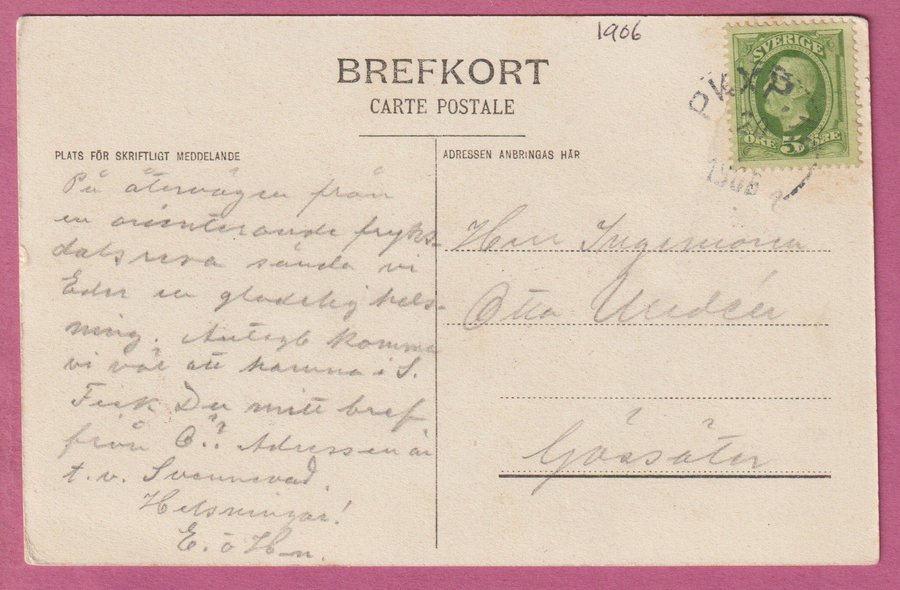 1906
SVERIGE
ÖRE 5 ÖRE
PKXP
1906
BREFKORT
CARTE POSTALE
PLATS FÖR SKRIFTLIGT MEDDELANDE
ADRESSEN ANBRINGAS HÄR
På återvägen från
en orienterande fryks-
dalsresa sända vi
Eder en gladelig hels-
ning. Antagl. komma
vi väl att hamna i S.
Fick Du mitt bref
från Ö.? Adressen är
t. v. Svennevad.
Helsningar!
E. o H-n.
Herr Ingeniören
Otto
Gössäter